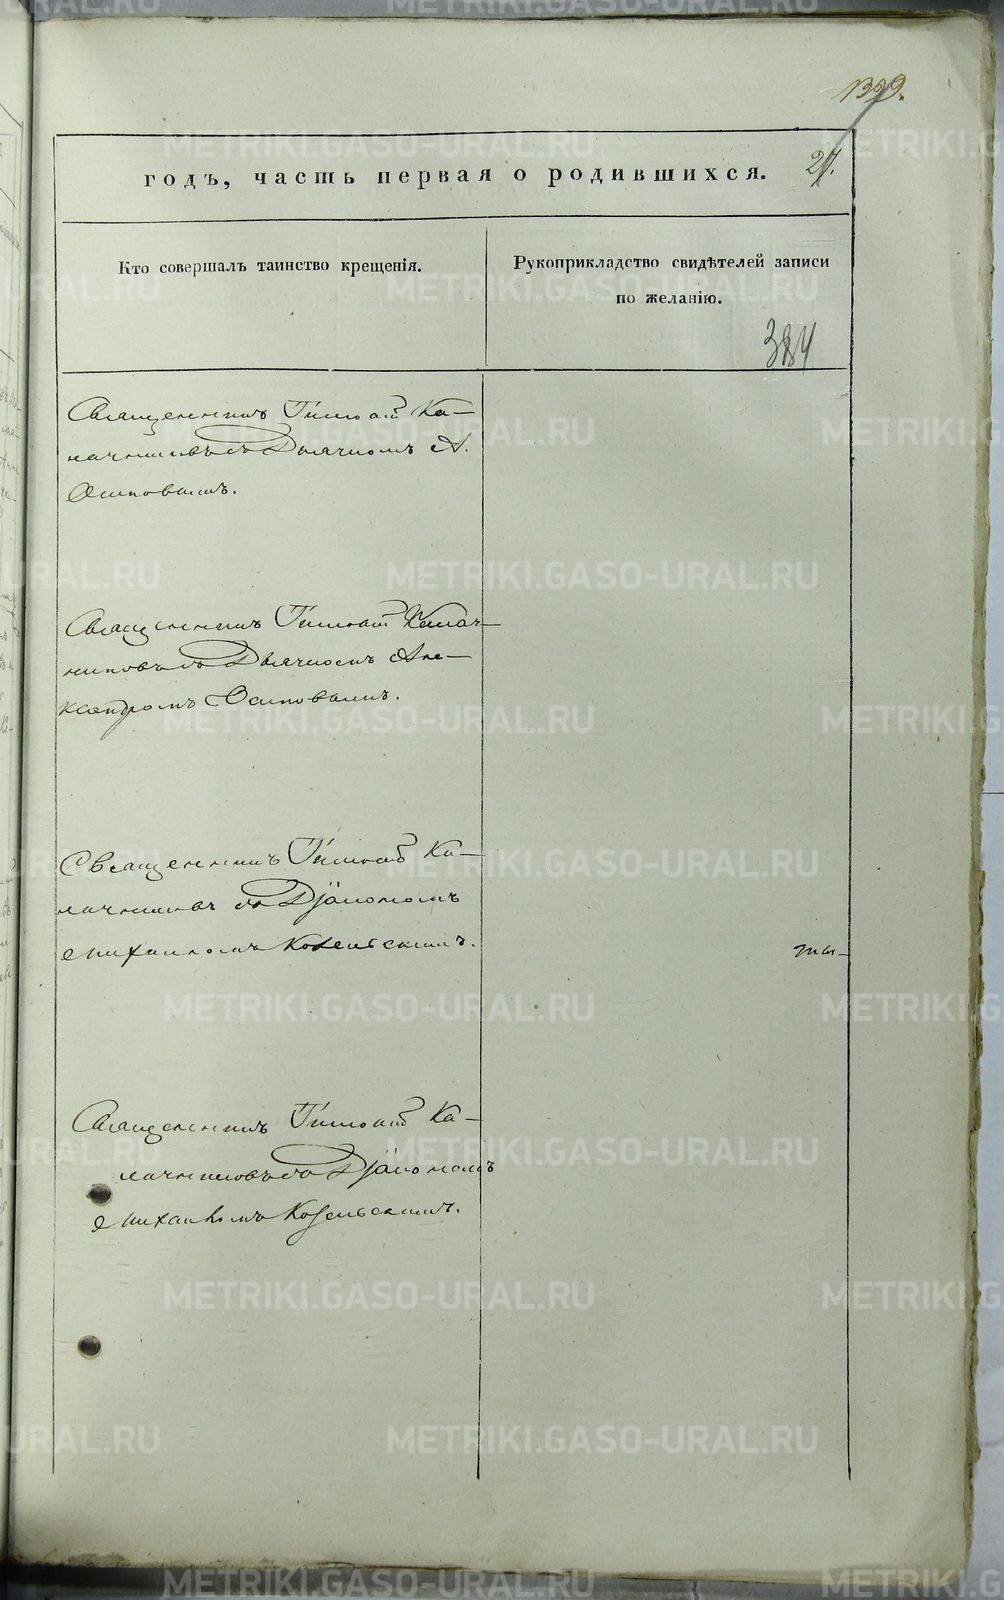 1329.
27.
годъ, часть первая о родившихся.
Кто совершалъ таинство крещенія.
Рукоприкладство свидѣтелей записи
по желанію.
384
Священникъ Тимоѳей Ка-
лачниковъ съ Дьячкомъ А.
Осиповымъ.
Священникъ Тимоѳей Калач-
никовъ съ Дьячкомъ Але-
ксандромъ Осиповымъ.
Священникъ Тимоѳей Ка-
лачниковъ съ Діакономъ
Михаиломъ Козельскимъ.
Священникъ Тимоѳей Ка-
лачниковъ съ Діакономъ
Михаиломъ Козельскимъ.
METRIKI.GASO-URAL.RU